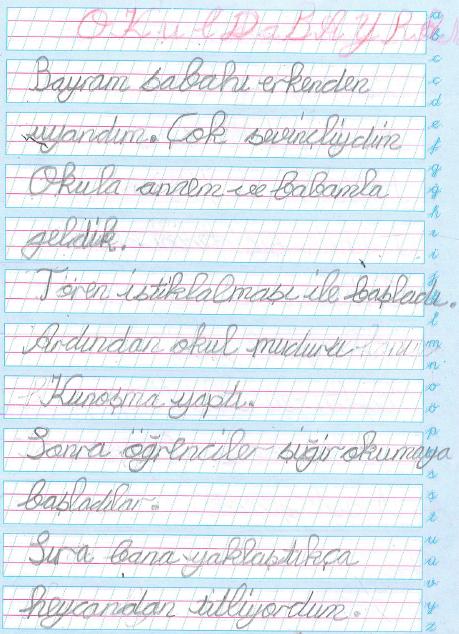 OKulDaBAYRAM
Bayram sabahı erkenden
uyandım. Çok sevinçliydim
Okula annem ve babamla
geldik.
Tören istiklalmaşı ile başladı.
Ardından okul muduru
Kunoşma yaptı.
Sonra öğrenciler şiğir okumaya
başladılar.
Sıra bana yaklaştıkça
heycandan titliyordum.
a
b
c
ç
d
e
f
g
ğ
h
ı
i
j
k
l
m
n
o
ö
p
r
s
ş
t
u
ü
v
y
z